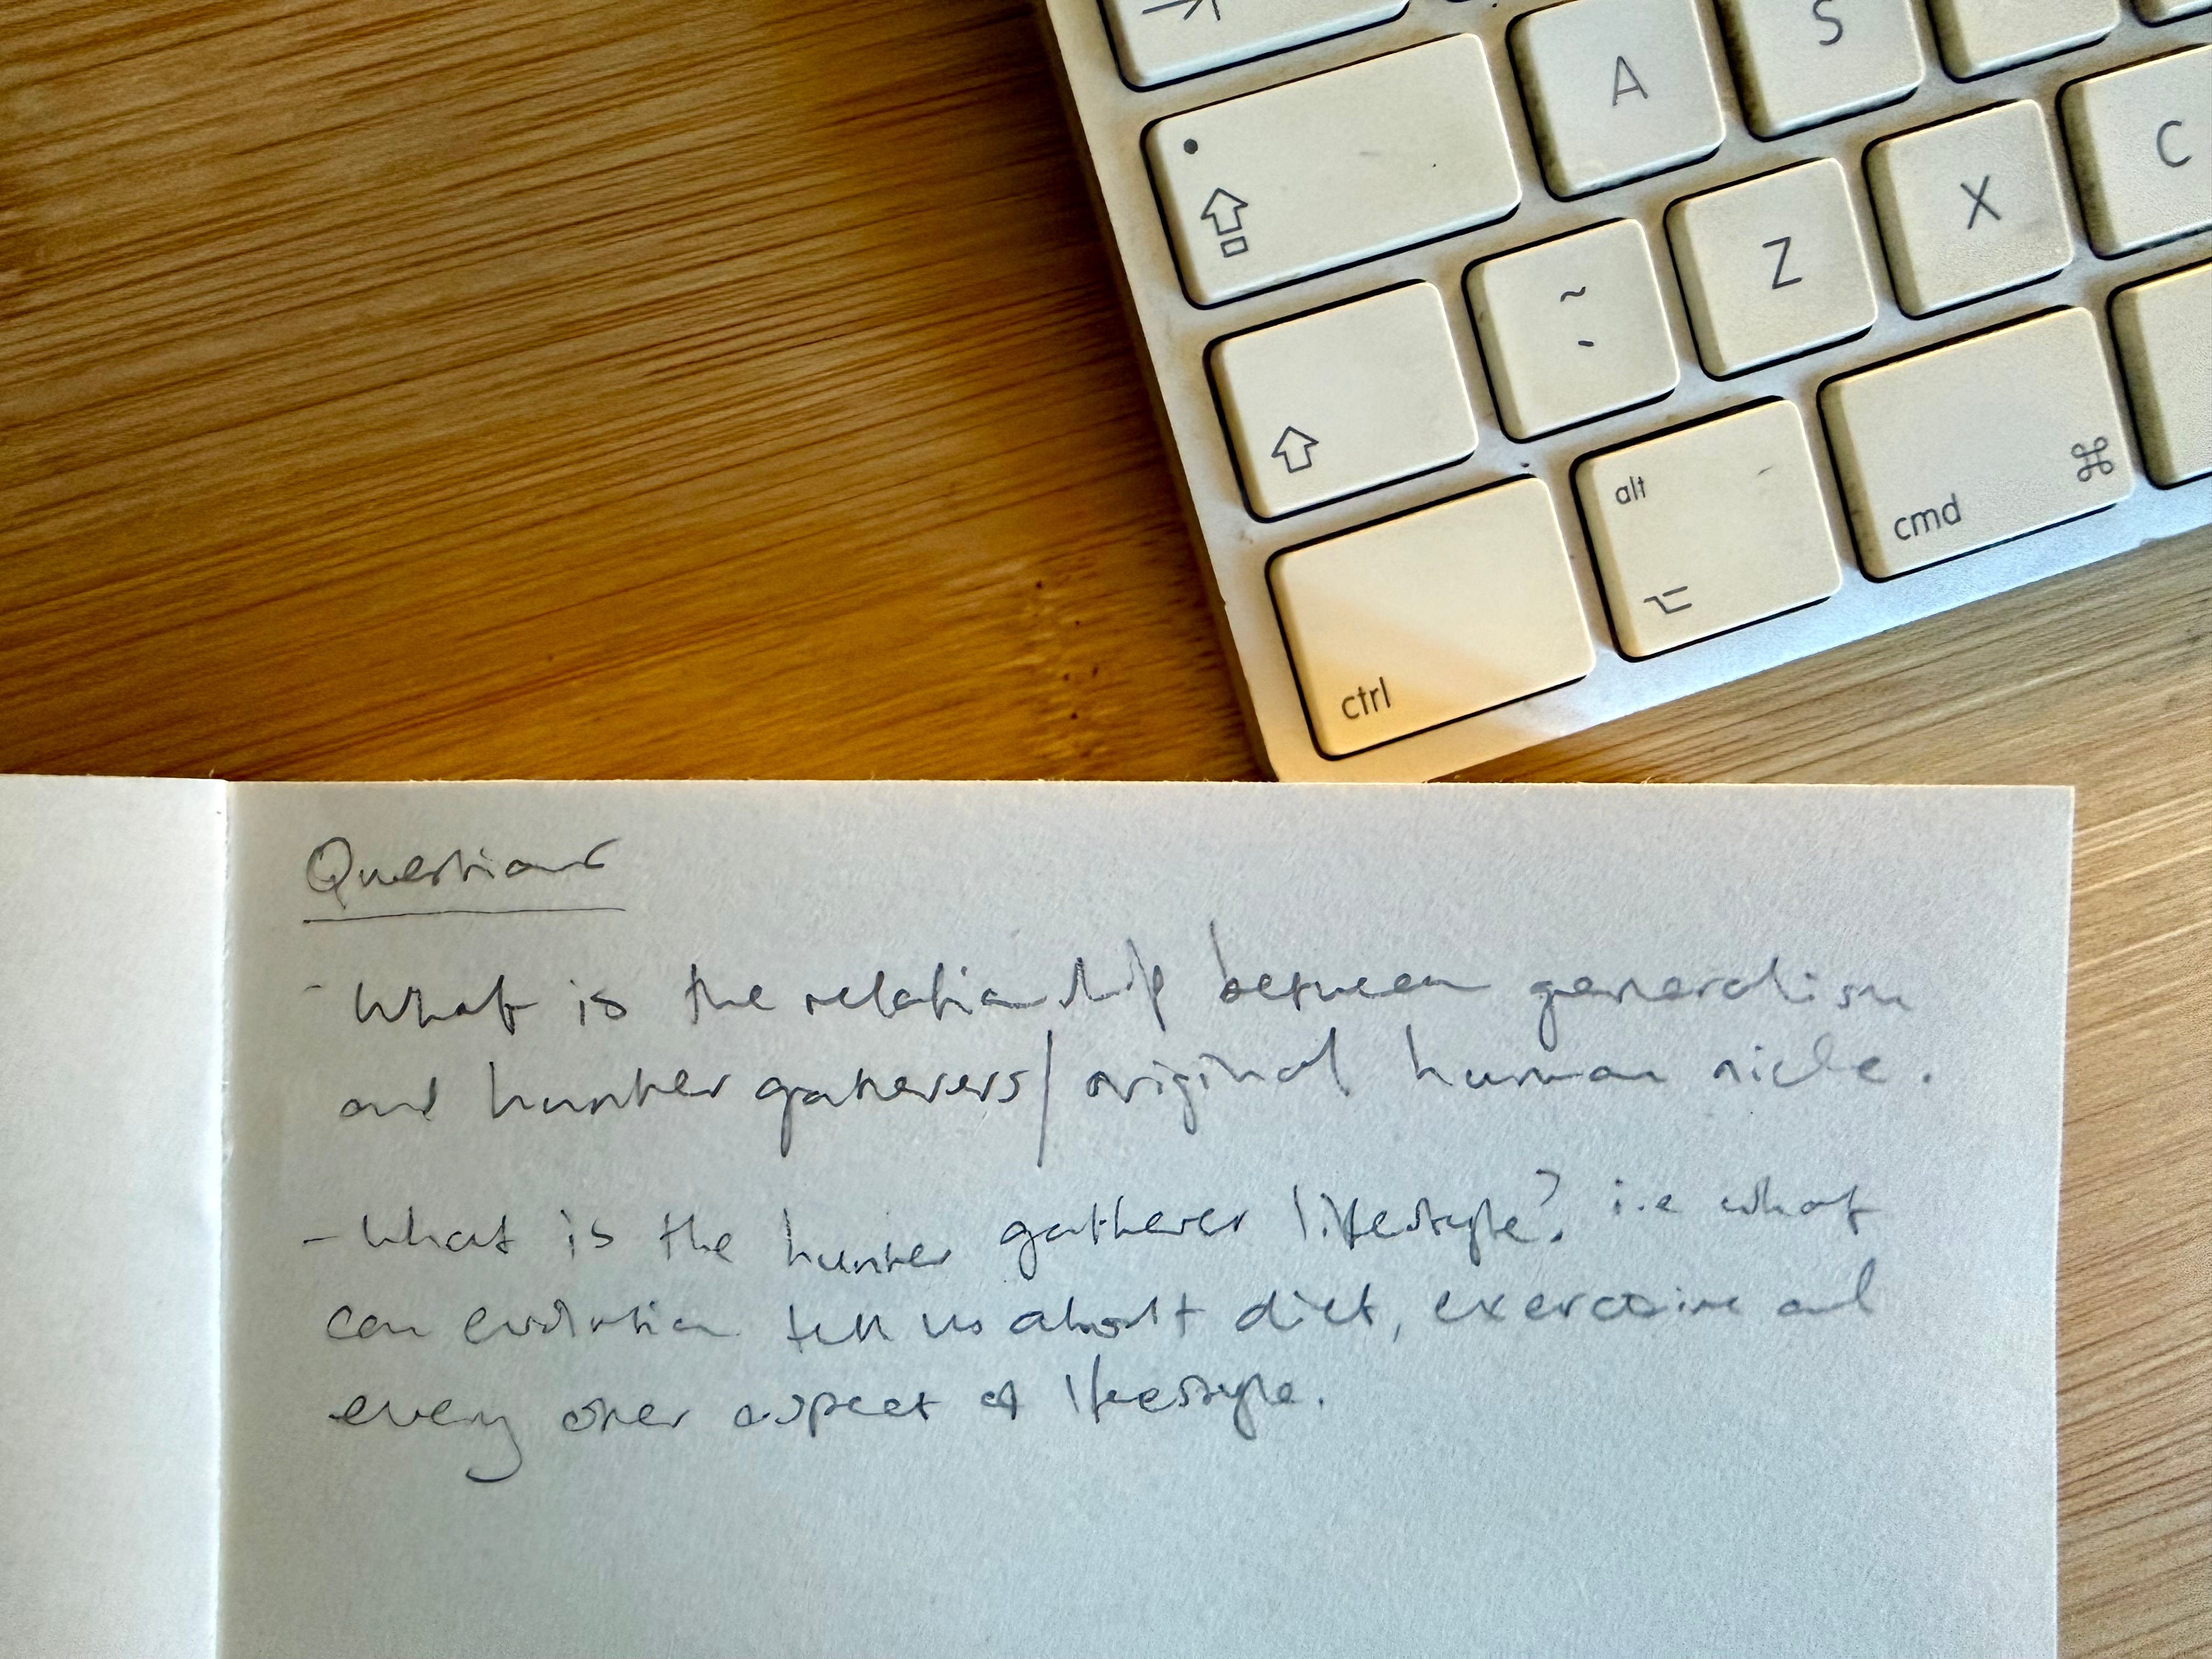 A
S
C
X
Z
~
-
alt
cmd ⌘
ctrl
Questions
- What is the relationship between generalism
and hunter gatherers/original human niche.
- What is the hunter gatherer lifestyle? i.e what
can evolution tell us about diet, exercise and
every other aspect of lifestyle.